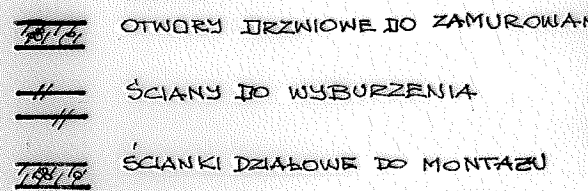 OTWORY DRZWIOWE DO ZAMUROWAN
ŚCIANY DO WYBURZENIA
ŚCIANKI DZIAŁOWE DO MONTAŻU